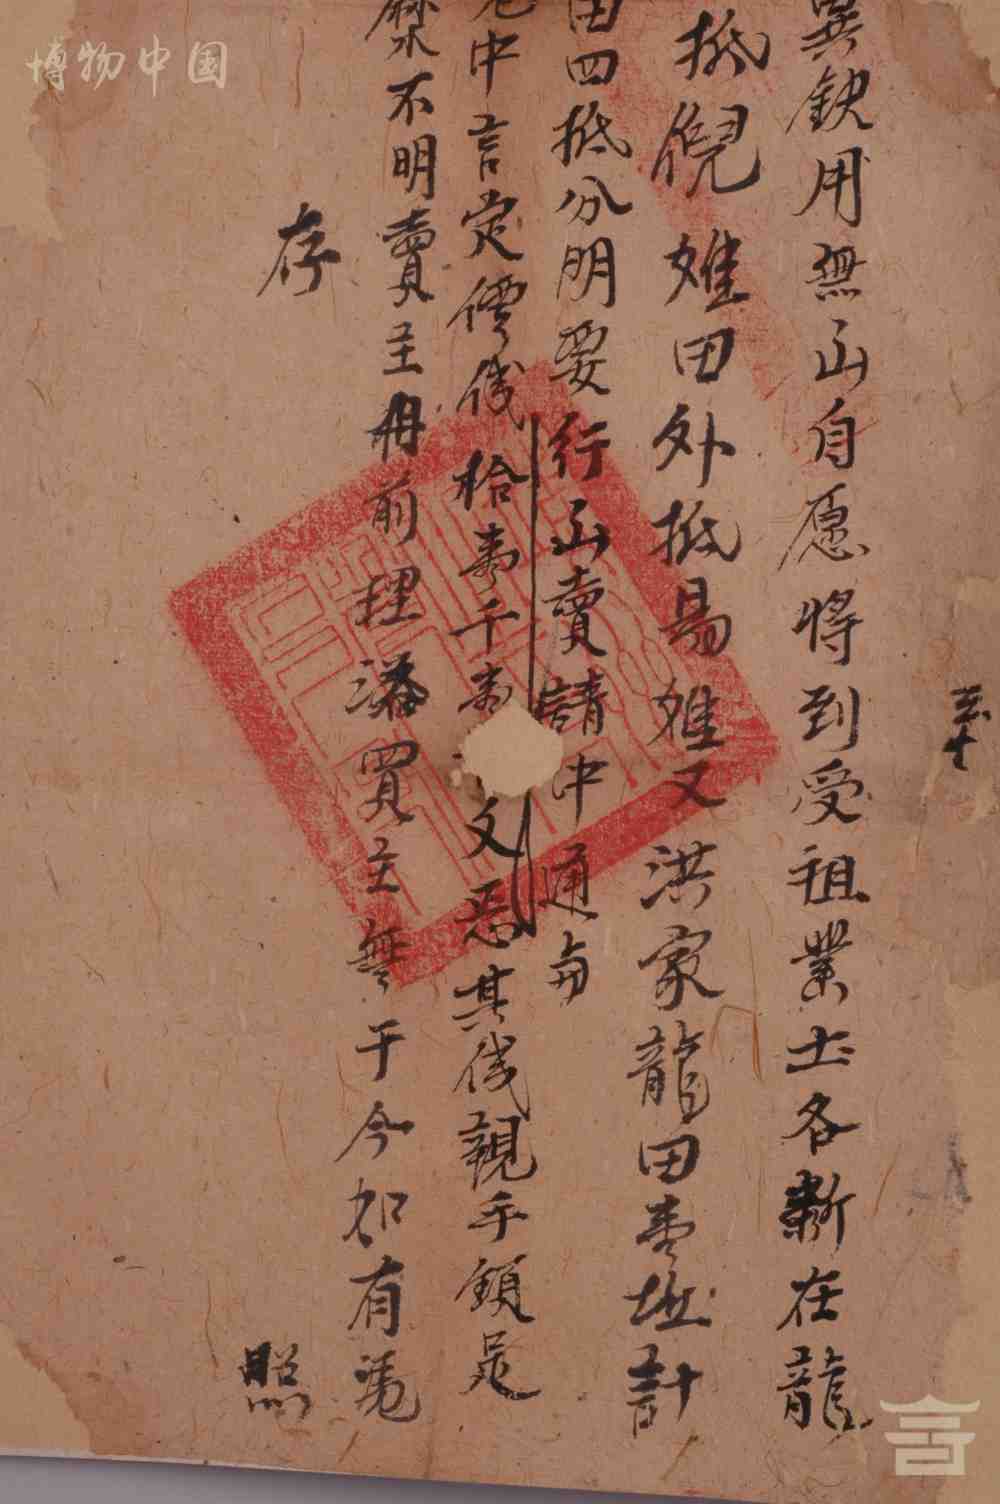 缺用無山自愿将到受祖業土名斬在龍
抵倪姓田外抵易姓又洪家龍田壹坵計
田四抵分明要行山賣請中通
中言定價伐拾壹千 文 其伐親手領足
不明賣主毋前理 買主無干今如有凴
存
照
博物中国